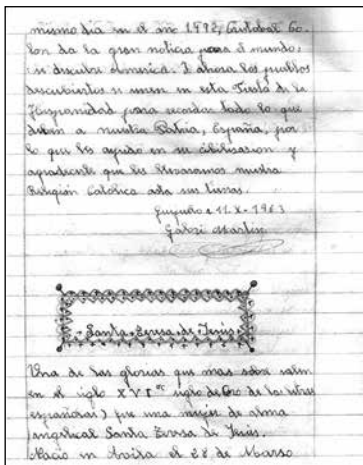 mismo día en el año 1992, Cristobal Co-
lon da la gran noticia para el mundo,
se descubre America. I ahora los pueblos
descubiertos se unen en esta Fiesta de la
Hispanidad para recordar todo lo que
deben a nuestra Patria, España, por
lo que les ayudo en su cibilisasion y
agradecerle que les llevaramos nuestra
Religión Catolica asta sus tierras.
11-X-1963
Gabri Martin
-Santa-Teresa-de-Jesús-
Una de las glorias que mas sobre salen
en el siglo XVI (siglo de Oro de las letras
españolas) fue una mujer de alma
angelical Santa Teresa de Jesús.
Nació en Avila el 28 de Marso